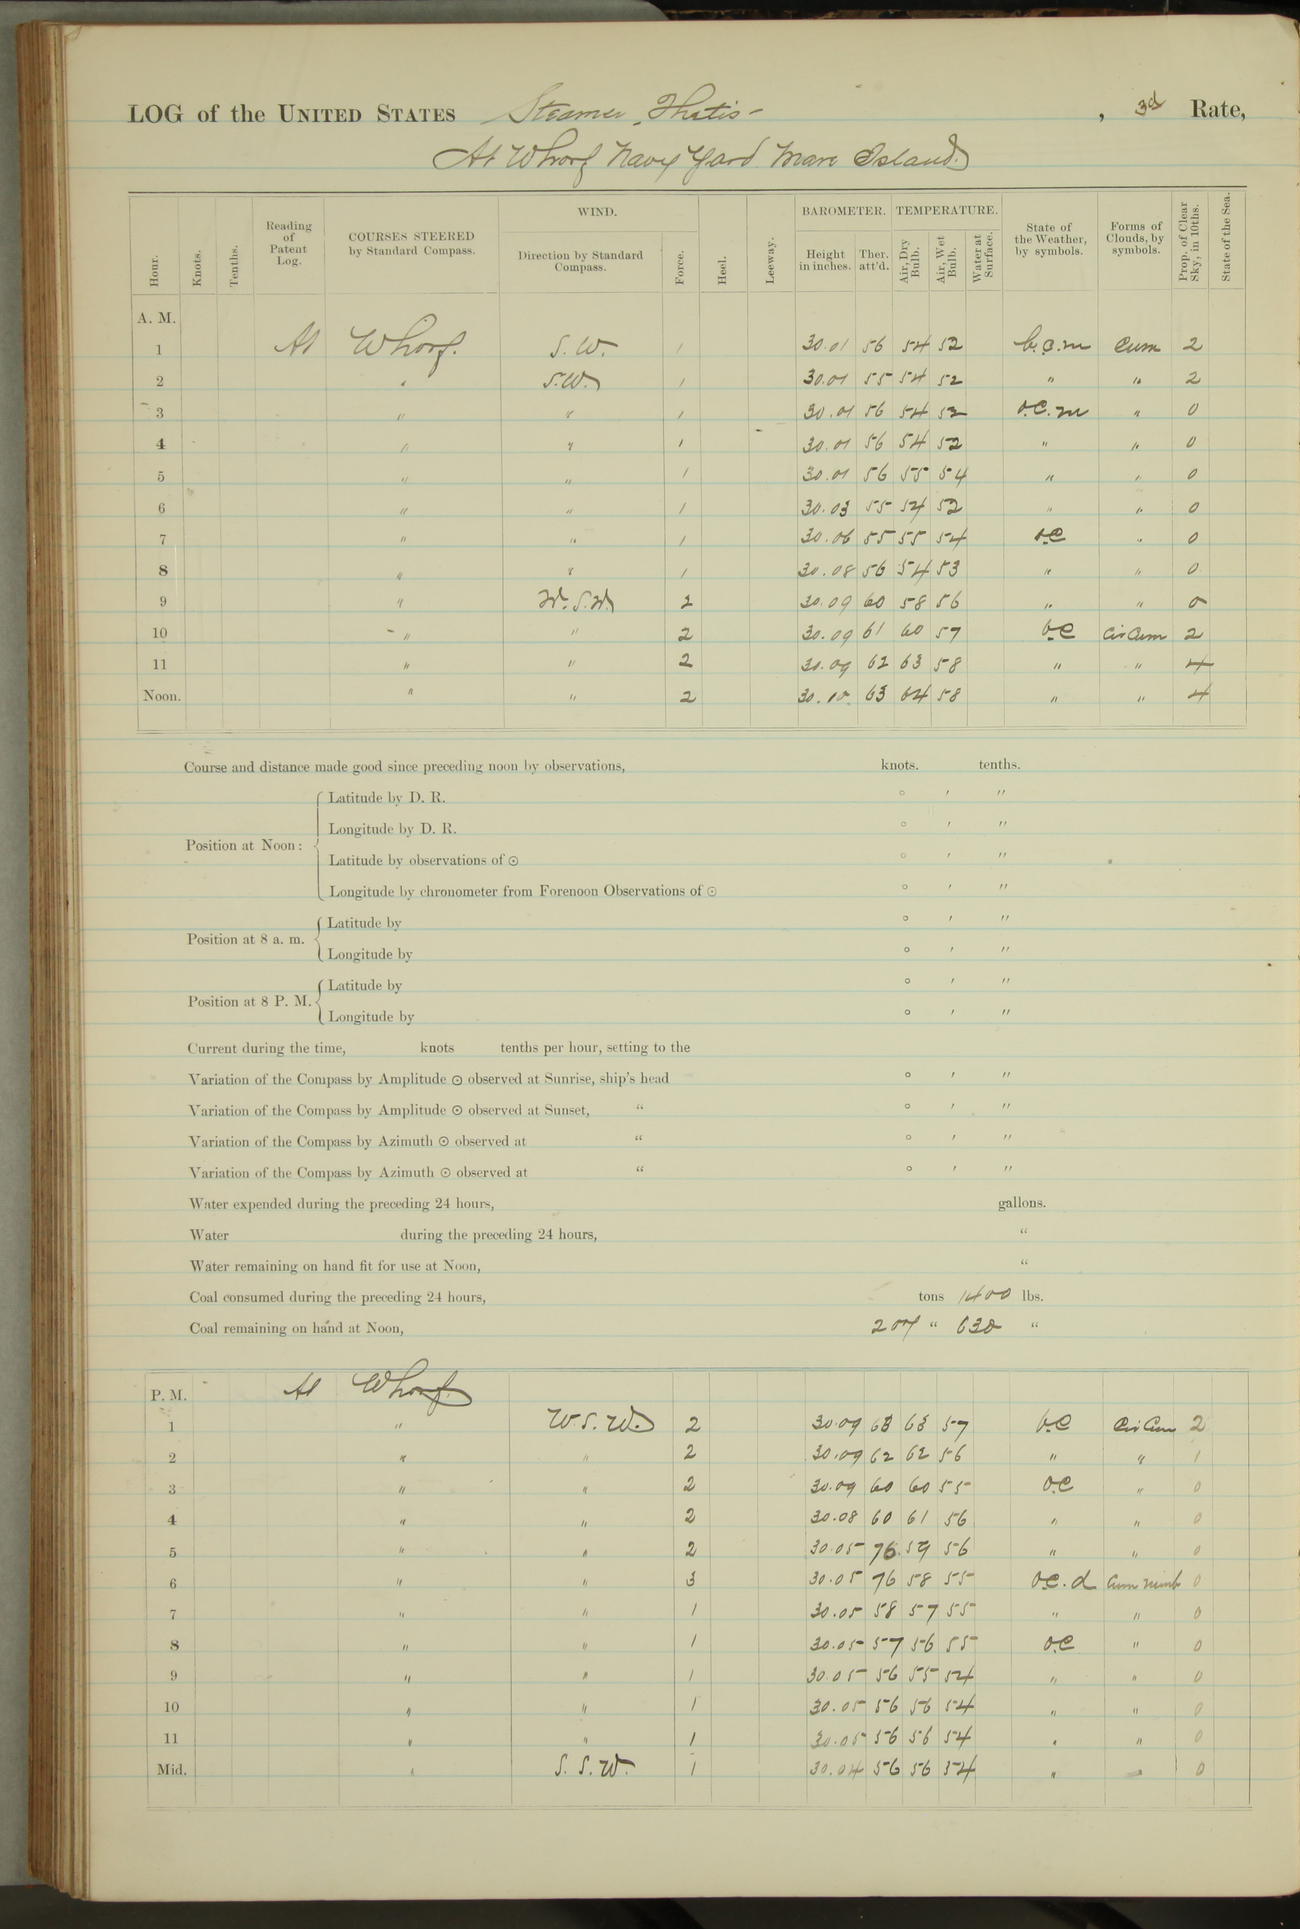 LOG of the UNITED STATES Steamer Thetis - , 3d Rate,
At Wharf Navy Yard Mare Island.
Hour. Knots. Tenths. Reading of Patent Log. COURSES STEERED by Standard Compass. WIND. Direction by Standard Compass. Force. Heel. Leeway. BAROMETER. Height in inches. Ther. att'd. TEMPERATURE. Air, Dry Bulb. Air, Wet Bulb. Water at Surface. State of the Weather, by symbols. Forms of Clouds, by symbols. Prop. of Clear Sky, in 10ths. State of the Sea.
A. M.
1 At Wharf. S. W. 1 30.01 56 54 52 b.c.m Cum 2
2 " S.W. 1 30.01 55 54 52 " " 2
3 " " 1 30.01 56 54 52 o.c.m " 0
4 " " 1 30.01 56 54 52 " " 0
5 " " 1 30.01 56 55 54 " " 0
6 " " 1 30.03 55 54 52 " " 0
7 " " 1 30.06 55 55 54 o.c " 0
8 " " 1 30.08 56 54 53 " " 0
9 " W.S.W. 2 30.09 60 58 56 " " 0
10 " " 2 30.09 61 60 57 b.c Cir Cum 2
11 " " 2 30.09 62 63 58 " " 4
Noon. " " 2 30.10 63 64 58 " " 4
Course and distance made good since preceding noon by observations, knots. tenths.
Position at Noon: Latitude by D. R. ° ′ ″
Longitude by D. R. ° ′ ″
Latitude by observations of ☉ ° ′ ″
Longitude by chronometer from Forenoon Observations of ☉ ° ′ ″
Position at 8 a. m. Latitude by ° ′ ″
Longitude by ° ′ ″
Position at 8 P. M. Latitude by ° ′ ″
Longitude by ° ′ ″
Current during the time, knots tenths per hour, setting to the
Variation of the Compass by Amplitude ☉ observed at Sunrise, ship's head ° ′ ″
Variation of the Compass by Amplitude ☉ observed at Sunset, " ° ′ ″
Variation of the Compass by Azimuth ☉ observed at " ° ′ ″
Variation of the Compass by Azimuth ☉ observed at " ° ′ ″
Water expended during the preceding 24 hours, gallons.
Water during the preceding 24 hours, "
Water remaining on hand fit for use at Noon, "
Coal consumed during the preceding 24 hours, tons 1400 lbs.
Coal remaining on hand at Noon, " 630 "
P. M. At Wharf.
1 " W.S.W. 2 30.09 63 63 57 b.c Cir Cum 2
2 " " 2 30.09 62 62 56 " " 1
3 " " 2 30.09 60 60 55 o.c " 0
4 " " 2 30.08 60 61 56 " " 0
5 " " 2 30.05 76 59 56 " " 0
6 " " 3 30.05 76 58 55 o.c.d Cum Nimb 0
7 " " 1 30.05 58 57 55 " " 0
8 " " 1 30.05 57 56 55 o.c " 0
9 " " 1 30.05 56 55 54 " " 0
10 " " 1 30.05 56 56 54 " " 0
11 " " 1 30.05 56 56 54 " " 0
Mid. " S. S. W. 1 30.04 56 56 54 " " 0